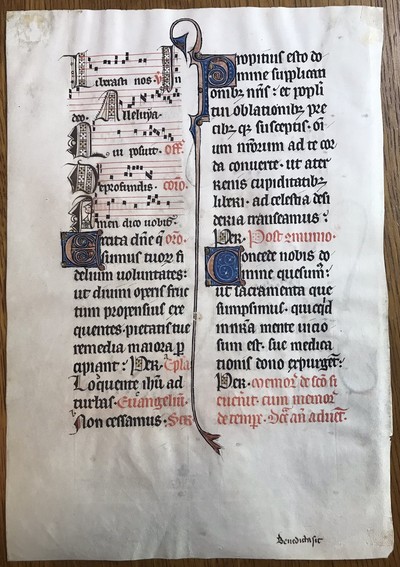 Liberasti nos. V. In
deo. Alleluya.
Qui posuit. Off.
De profundis. co͞io.
Amen dico uobis.
Excita dn̄e q̄s oro.
simus tuor̄ fi
delium uoluntates:
ut diuini operis fruc
tum propensius exe
quentes. pietatis tue
remedia maiora per
cipiant. Per. Ep̄la
Loquente ih̄u ad
turbas. Euangeliu͞.
Non cessamus. Secr̄
Propitius esto do
mine supplicati
onibꝫ nr̄is: et populi
tui oblationibꝫ pre
cibꝫ qꝫ susceptis. oi͞um
nr̄um ad te cor
da conuerte. ut a ter
renis cupiditatibꝫ
liberi. ad celestia desi
deria transeamus:
Per. Post munio.
Concede nobis do
mine quesum᷒:
ut sacramenta que
sumpsimus. quicq̄d
in nr̄a mente uicio
sum est. sue medica
tionis dono expurget.
Per.
Benedicta sit